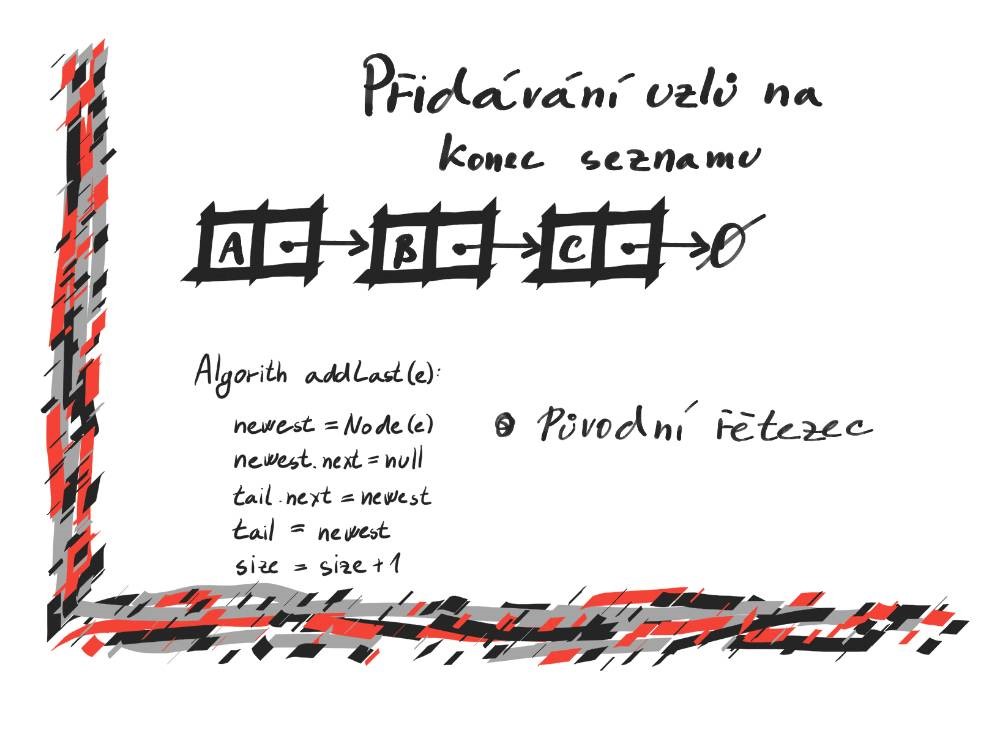 Přidávání uzlů na
konec seznamu
A B C Ø
Algorith addLast(e):
newest = Node(e)
newest.next = null
tail.next = newest
tail = newest
size = size + 1
Původní řetezec